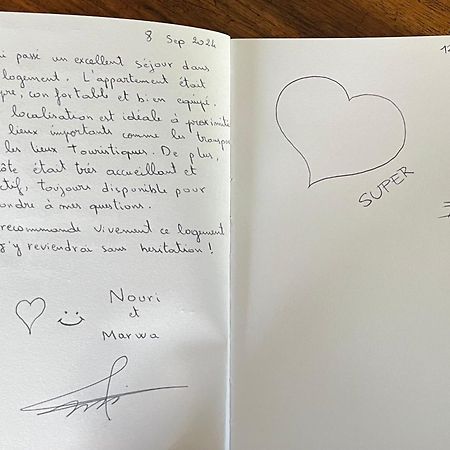 8 Sep 2024
i passé un excellent séjour dans
logement. L'appartement était
pre, confortable et bien equipé.
localisation est idéale à proximité
lieux importants comme les transpo
les lieux touristiques. De plus,
ôte était très accueillant et
ctif, toujours disponible pour
ondre à mes questions.
recommande vivement ce logement
j'y reviendrai sans hesitation !
Nouri
et
Marwa
12
SUPER